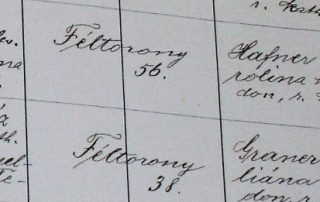 r. kath.
Féltorony
56.
Hafner
rolina
don, r.
Féltorony
38.
Graner
liána
don, r.